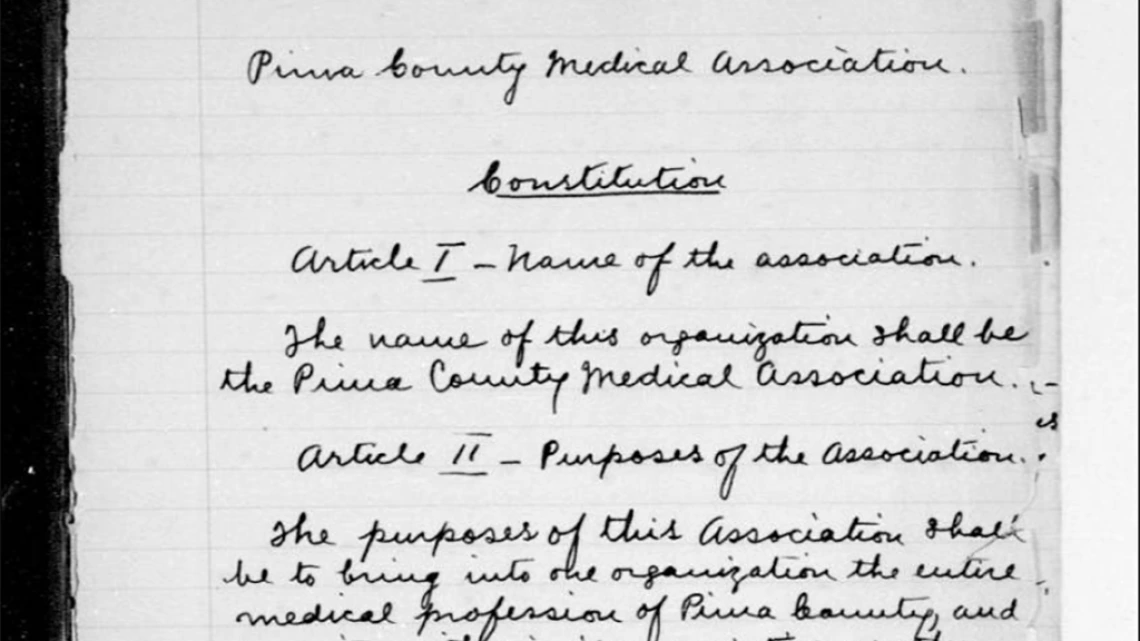 Pima County Medical Association.
Constitution
Article I – Name of the association.
The name of this organization shall be
the Pima County Medical Association.
is
Article II – Purposes of the Association.
The purposes of this Association shall
be to bring into one organization the entire
medical profession of Pima County, and